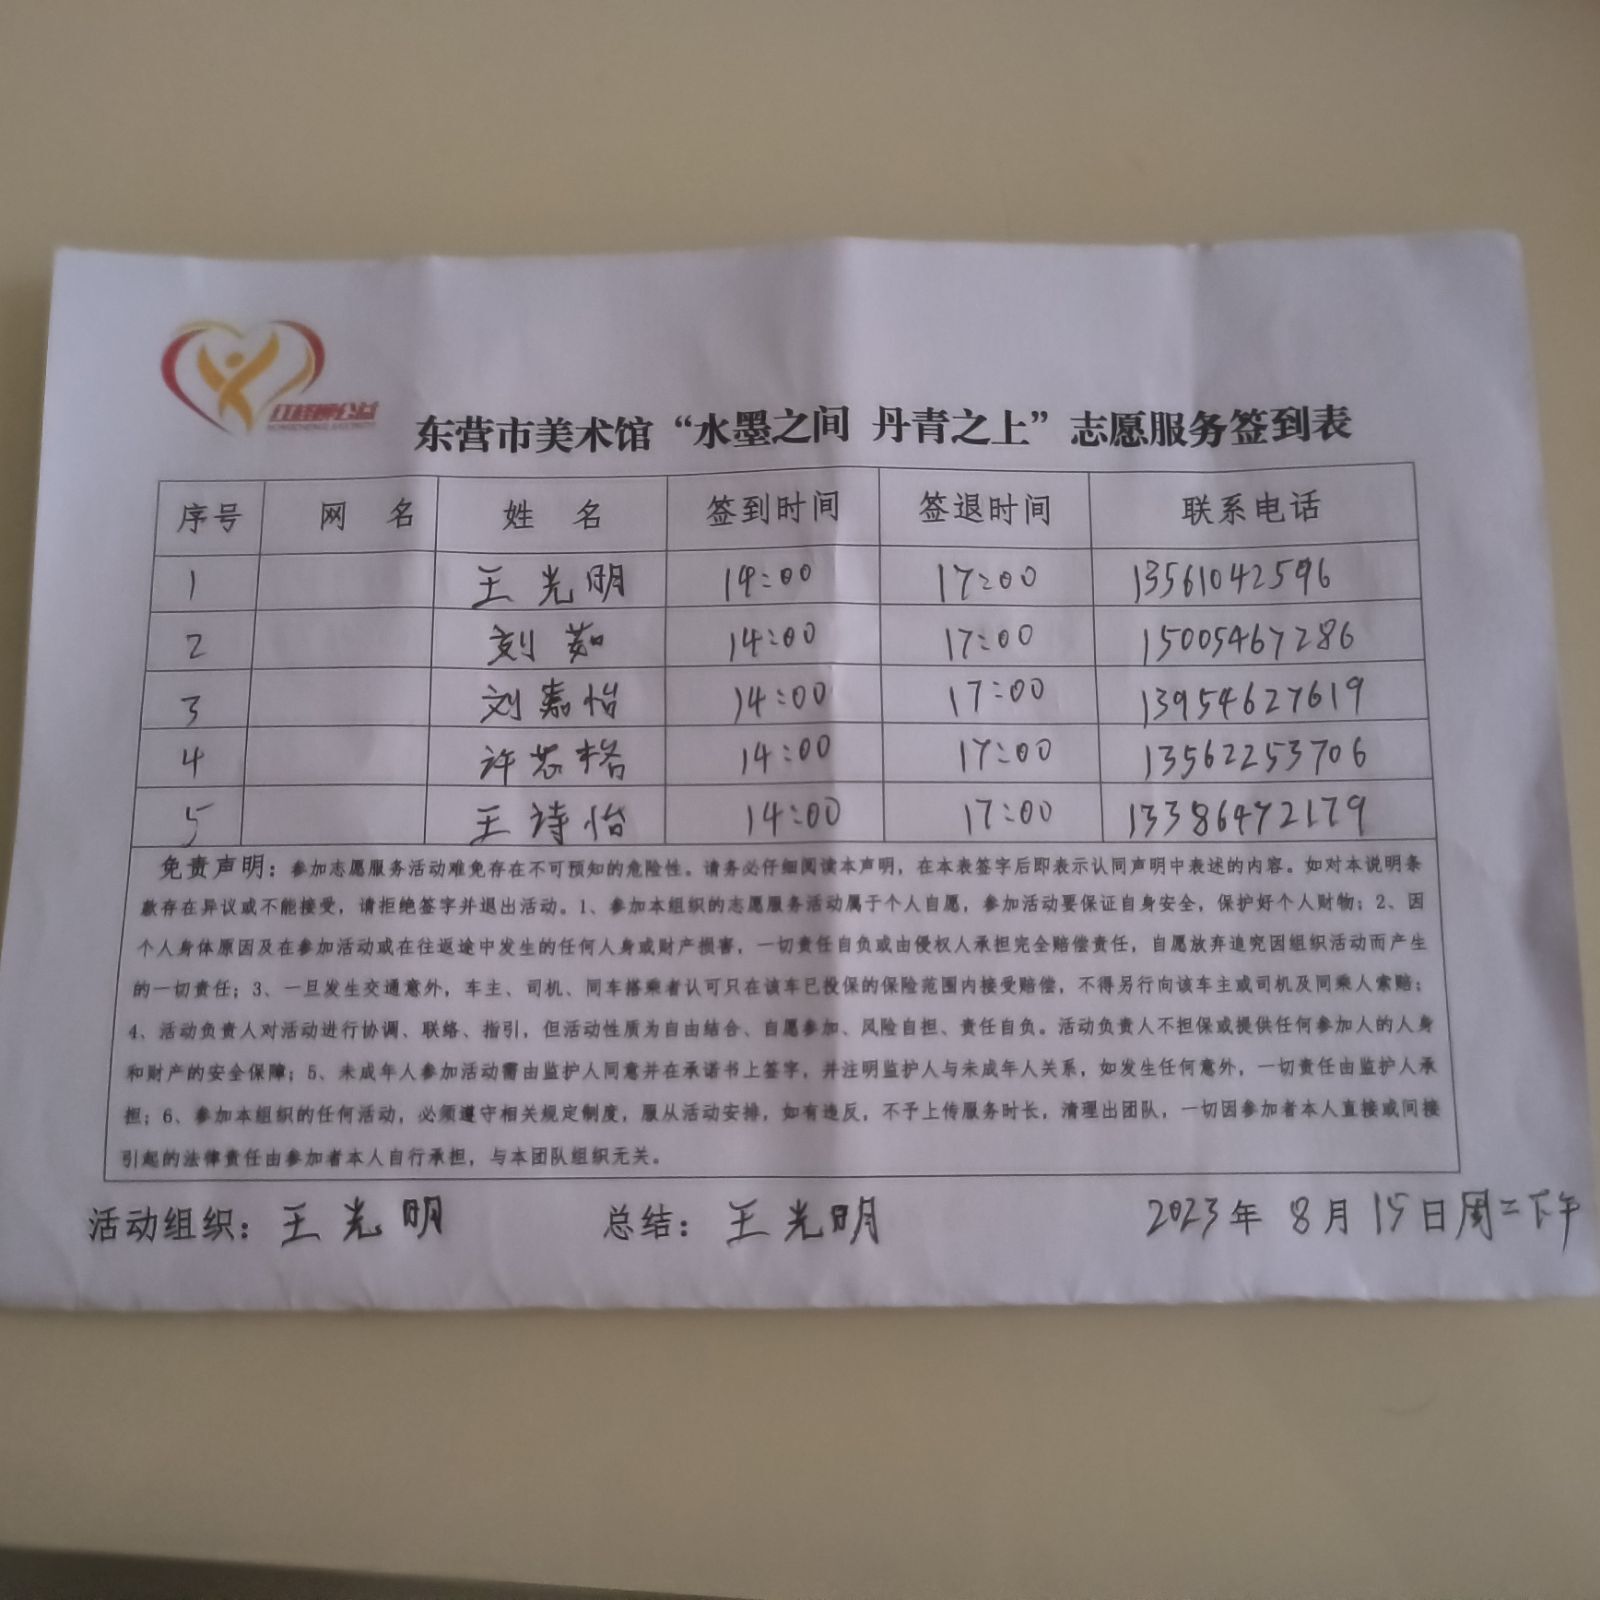 红柽柳公益
东营市美术馆“水墨之间 丹青之上”志愿服务签到表
序号 网 名 姓 名 签到时间 签退时间 联系电话
1 王光明 14:00 17:00 13561042596
2 刘茹 14:00 17:00 15005467286
3 刘嘉怡 14:00 17:00 13954627619
4 许芯格 14:00 17:00 13562253706
5 王诗怡 14:00 17:00 13386472179
免责声明：参加志愿服务活动难免存在不可预知的危险性。请务必仔细阅读本声明，在本表签字后即表示认同声明中表述的内容。如对本说明条
款存在异议或不能接受，请拒绝签字并退出活动。1、参加本组织的志愿服务活动属于个人自愿，参加活动要保证自身安全，保护好个人财物；2、因
个人身体原因及在参加活动或在往返途中发生的任何人身或财产损害，一切责任自负或由侵权人承担完全赔偿责任，自愿放弃追究因组织活动而产生
的一切责任；3、一旦发生交通意外，车主、司机、同车搭乘者认可只在该车已投保的保险范围内接受赔偿，不得另行向该车主或司机及同乘人索赔；
4、活动负责人对活动进行协调、联络、指引，但活动性质为自由结合、自愿参加、风险自担、责任自负。活动负责人不担保或提供任何参加人的人身
和财产的安全保障；5、未成年人参加活动需由监护人同意并在承诺书上签字，并注明监护人与未成年人关系，如发生任何意外，一切责任由监护人承
担；6、参加本组织的任何活动，必须遵守相关规定制度，服从活动安排，如有违反，不予上传服务时长，清理出团队，一切因参加者本人直接或间接
引起的法律责任由参加者本人自行承担，与本团队组织无关。
活动组织：王光明 总结：王光明 2023年8月15日周二下午